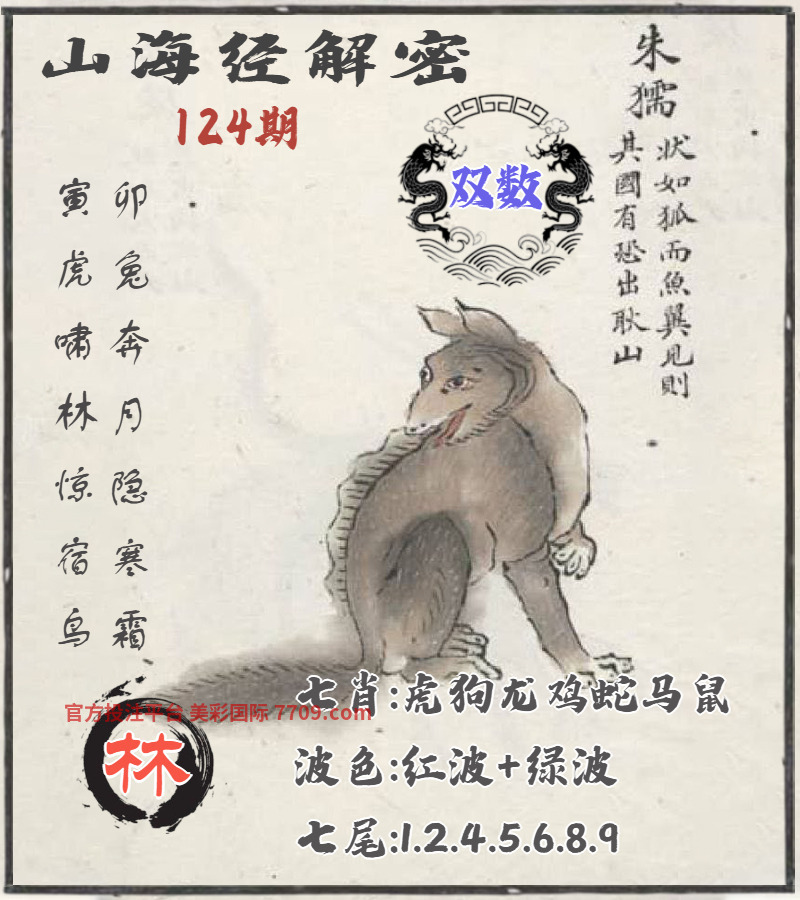 山海经解密
124期
双数
朱獳
狀如狐而魚翼見則
其國有恐出耿山
卯兔奔月隐寒霜
寅虎啸林惊宿鸟
七肖:虎狗龙鸡蛇马鼠
官方投注平台 美彩国际 7709.com
林
波色:红波+绿波
七尾:1.2.4.5.6.8.9